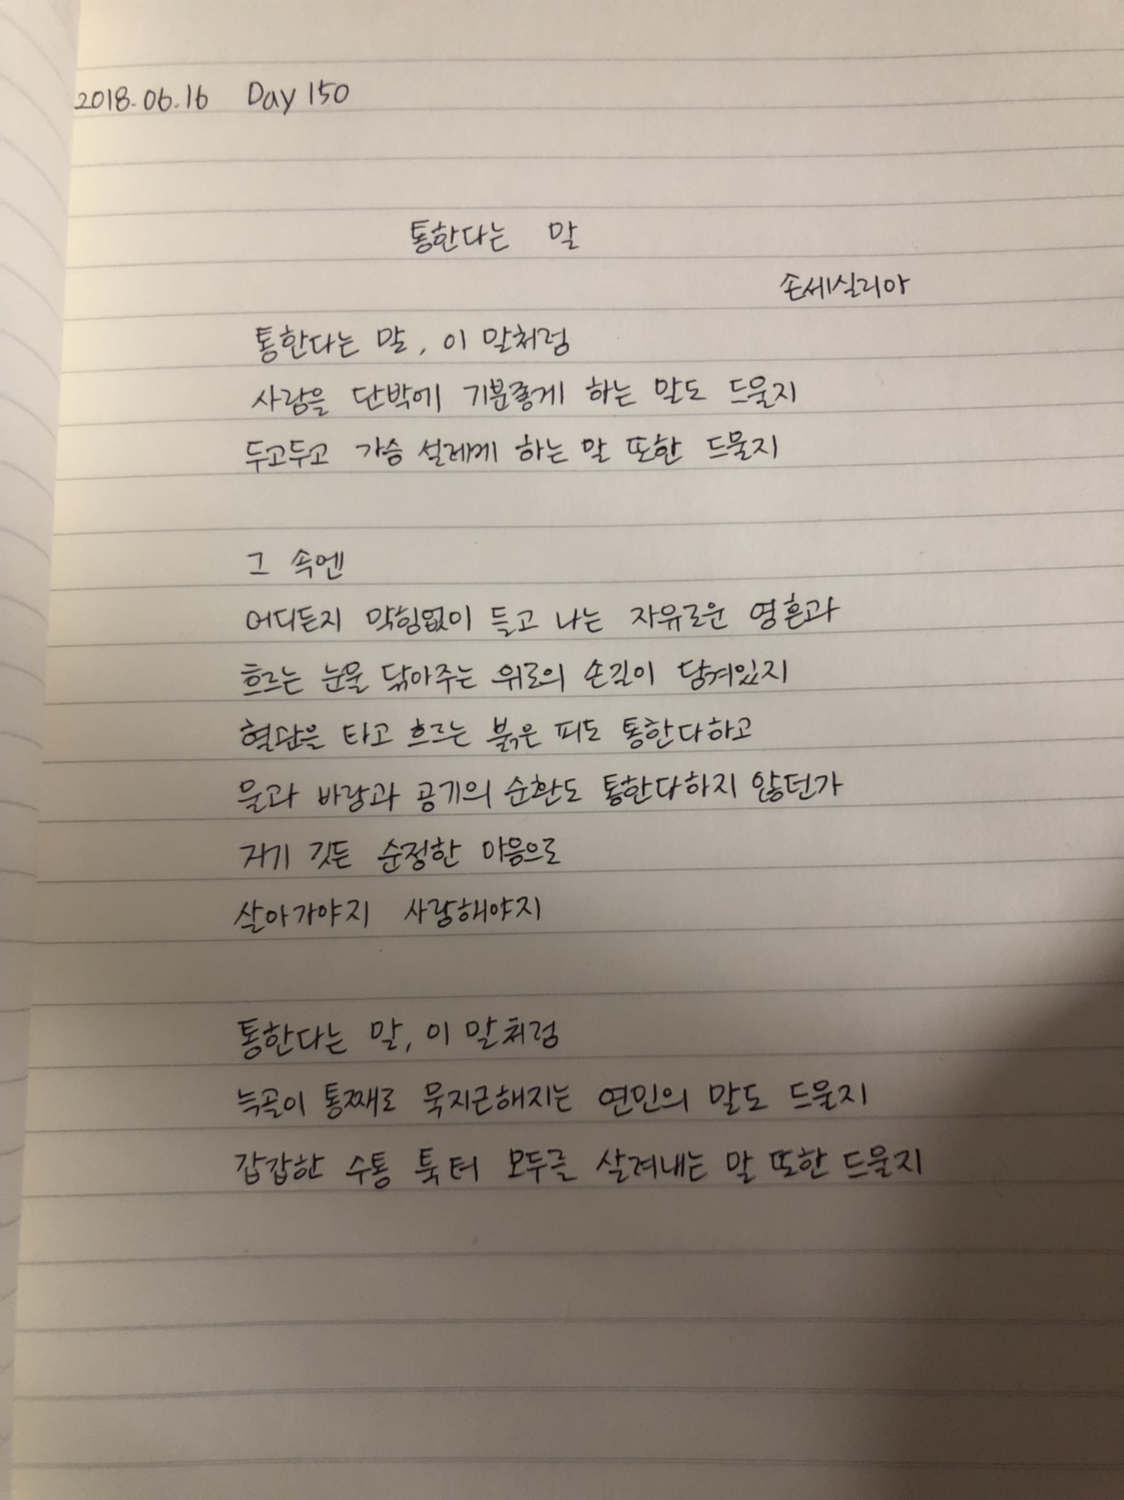 2018.06.16 Day 150
통한다는 말
손세실리아
통한다는 말, 이 말처럼
사람을 단박에 기분좋게 하는 말도 드물지
두고두고 가슴 설레게 하는 말 또한 드물지
그 속엔
어디든지 막힘없이 들고 나는 자유로운 영혼과
흐르는 눈물 닦아주는 위로의 손길이 담겨있지
혈관을 타고 흐르는 붉은 피도 통한다하고
물과 바람과 공기의 순환도 통한다하지 않던가
거기 깃든 순정한 마음으로
살아가야지 사랑해야지
통한다는 말, 이 말처럼
늑골이 통째로 묵지근해지는 연민의 말도 드물지
갑갑한 수통 툭 터 모두를 살려내는 말 또한 드물지